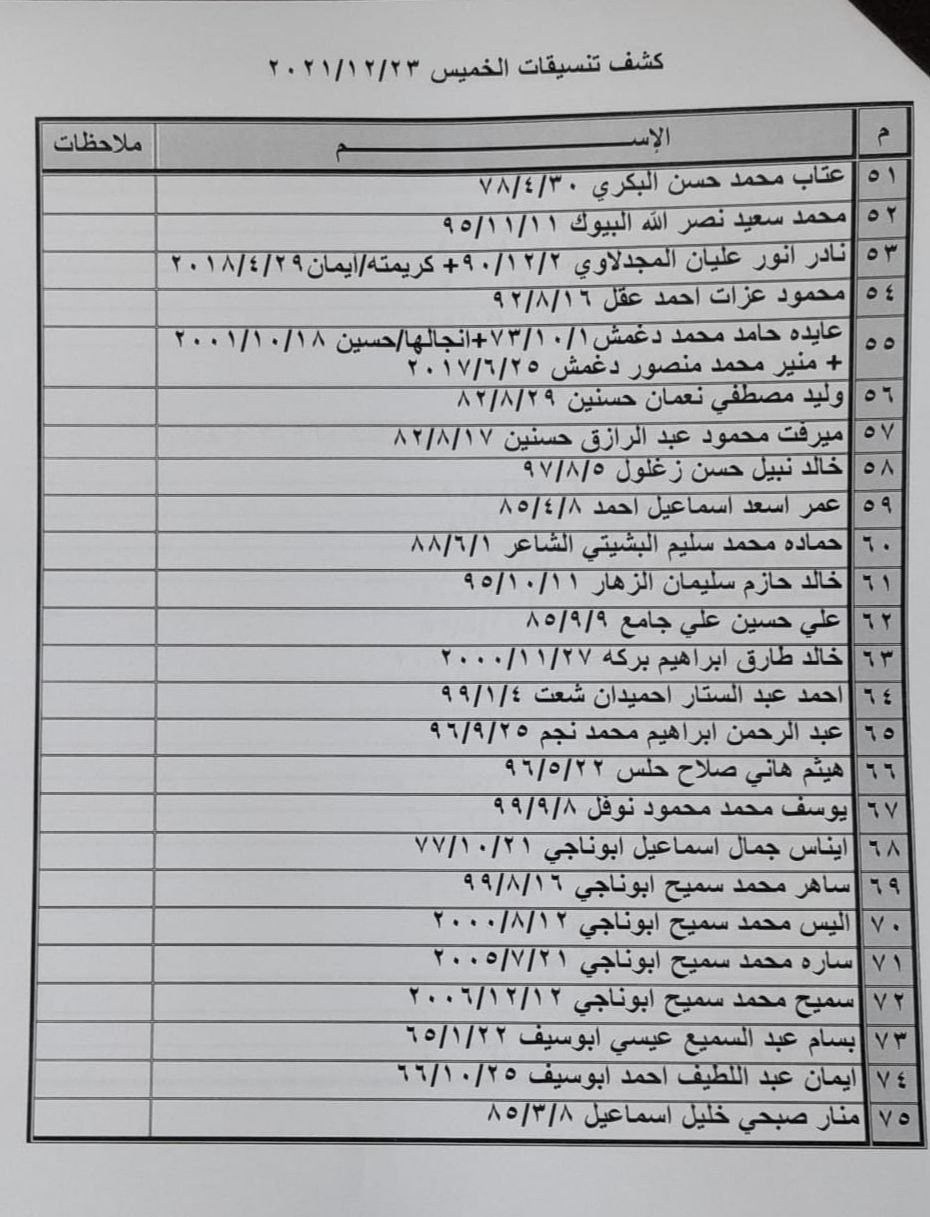 كشف تنسيقات الخميس ٢٠٢١/١٢/٢٣
م الإســـــــــــم ملاحظات
٥١ عتاب محمد حسن البكري ٧٨/٤/٣٠
٥٢ محمد سعيد نصر الله البيوك ٩٥/١١/١١
٥٣ نادر انور عليان المجدلاوي ٩٠/١٢/٢+ كريمته/ايمان٢٠١٨/٤/٢٩
٥٤ محمود عزات احمد عقل ٩٢/٨/١٦
٥٥ عايده حامد محمد دغمش٧٣/١٠/١+انجالها/حسين ٢٠٠١/١٠/١٨
+ منير محمد منصور دغمش ٢٠١٧/٦/٢٥
٥٦ وليد مصطفي نعمان حسنين ٨٢/٨/٢٩
٥٧ ميرفت محمود عبد الرازق حسنين ٨٢/٨/١٧
٥٨ خالد نبيل حسن زغلول ٩٧/٨/٥
٥٩ عمر اسعد اسماعيل احمد ٨٥/٤/٨
٦٠ حماده محمد سليم البشيتي الشاعر ٨٨/٦/١
٦١ خالد حازم سليمان الزهار ٩٥/١٠/١١
٦٢ علي حسين علي جامع ٨٥/٩/٩
٦٣ خالد طارق ابراهيم بركه ٢٠٠٠/١١/٢٧
٦٤ احمد عبد الستار احميدان شعت ٩٩/١/٤
٦٥ عبد الرحمن ابراهيم محمد نجم ٩٦/٩/٢٥
٦٦ هيثم هاني صلاح حلس ٩٦/٥/٢٢
٦٧ يوسف محمد محمود نوفل ٩٩/٩/٨
٦٨ ايناس جمال اسماعيل ابوناجي ٧٧/١٠/٢١
٦٩ ساهر محمد سميح ابوناجي ٩٩/٨/١٦
٧٠ اليس محمد سميح ابوناجي ٢٠٠٠/٨/١٢
٧١ ساره محمد سميح ابوناجي ٢٠٠٥/٧/٢١
٧٢ سميح محمد سميح ابوناجي ٢٠٠٦/١٢/١٢
٧٣ بسام عبد السميع عيسي ابوسيف ٦٥/١/٢٢
٧٤ ايمان عبد اللطيف احمد ابوسيف ٦٦/١٠/٢٥
٧٥ منار صبحي خليل اسماعيل ٨٥/٣/٨